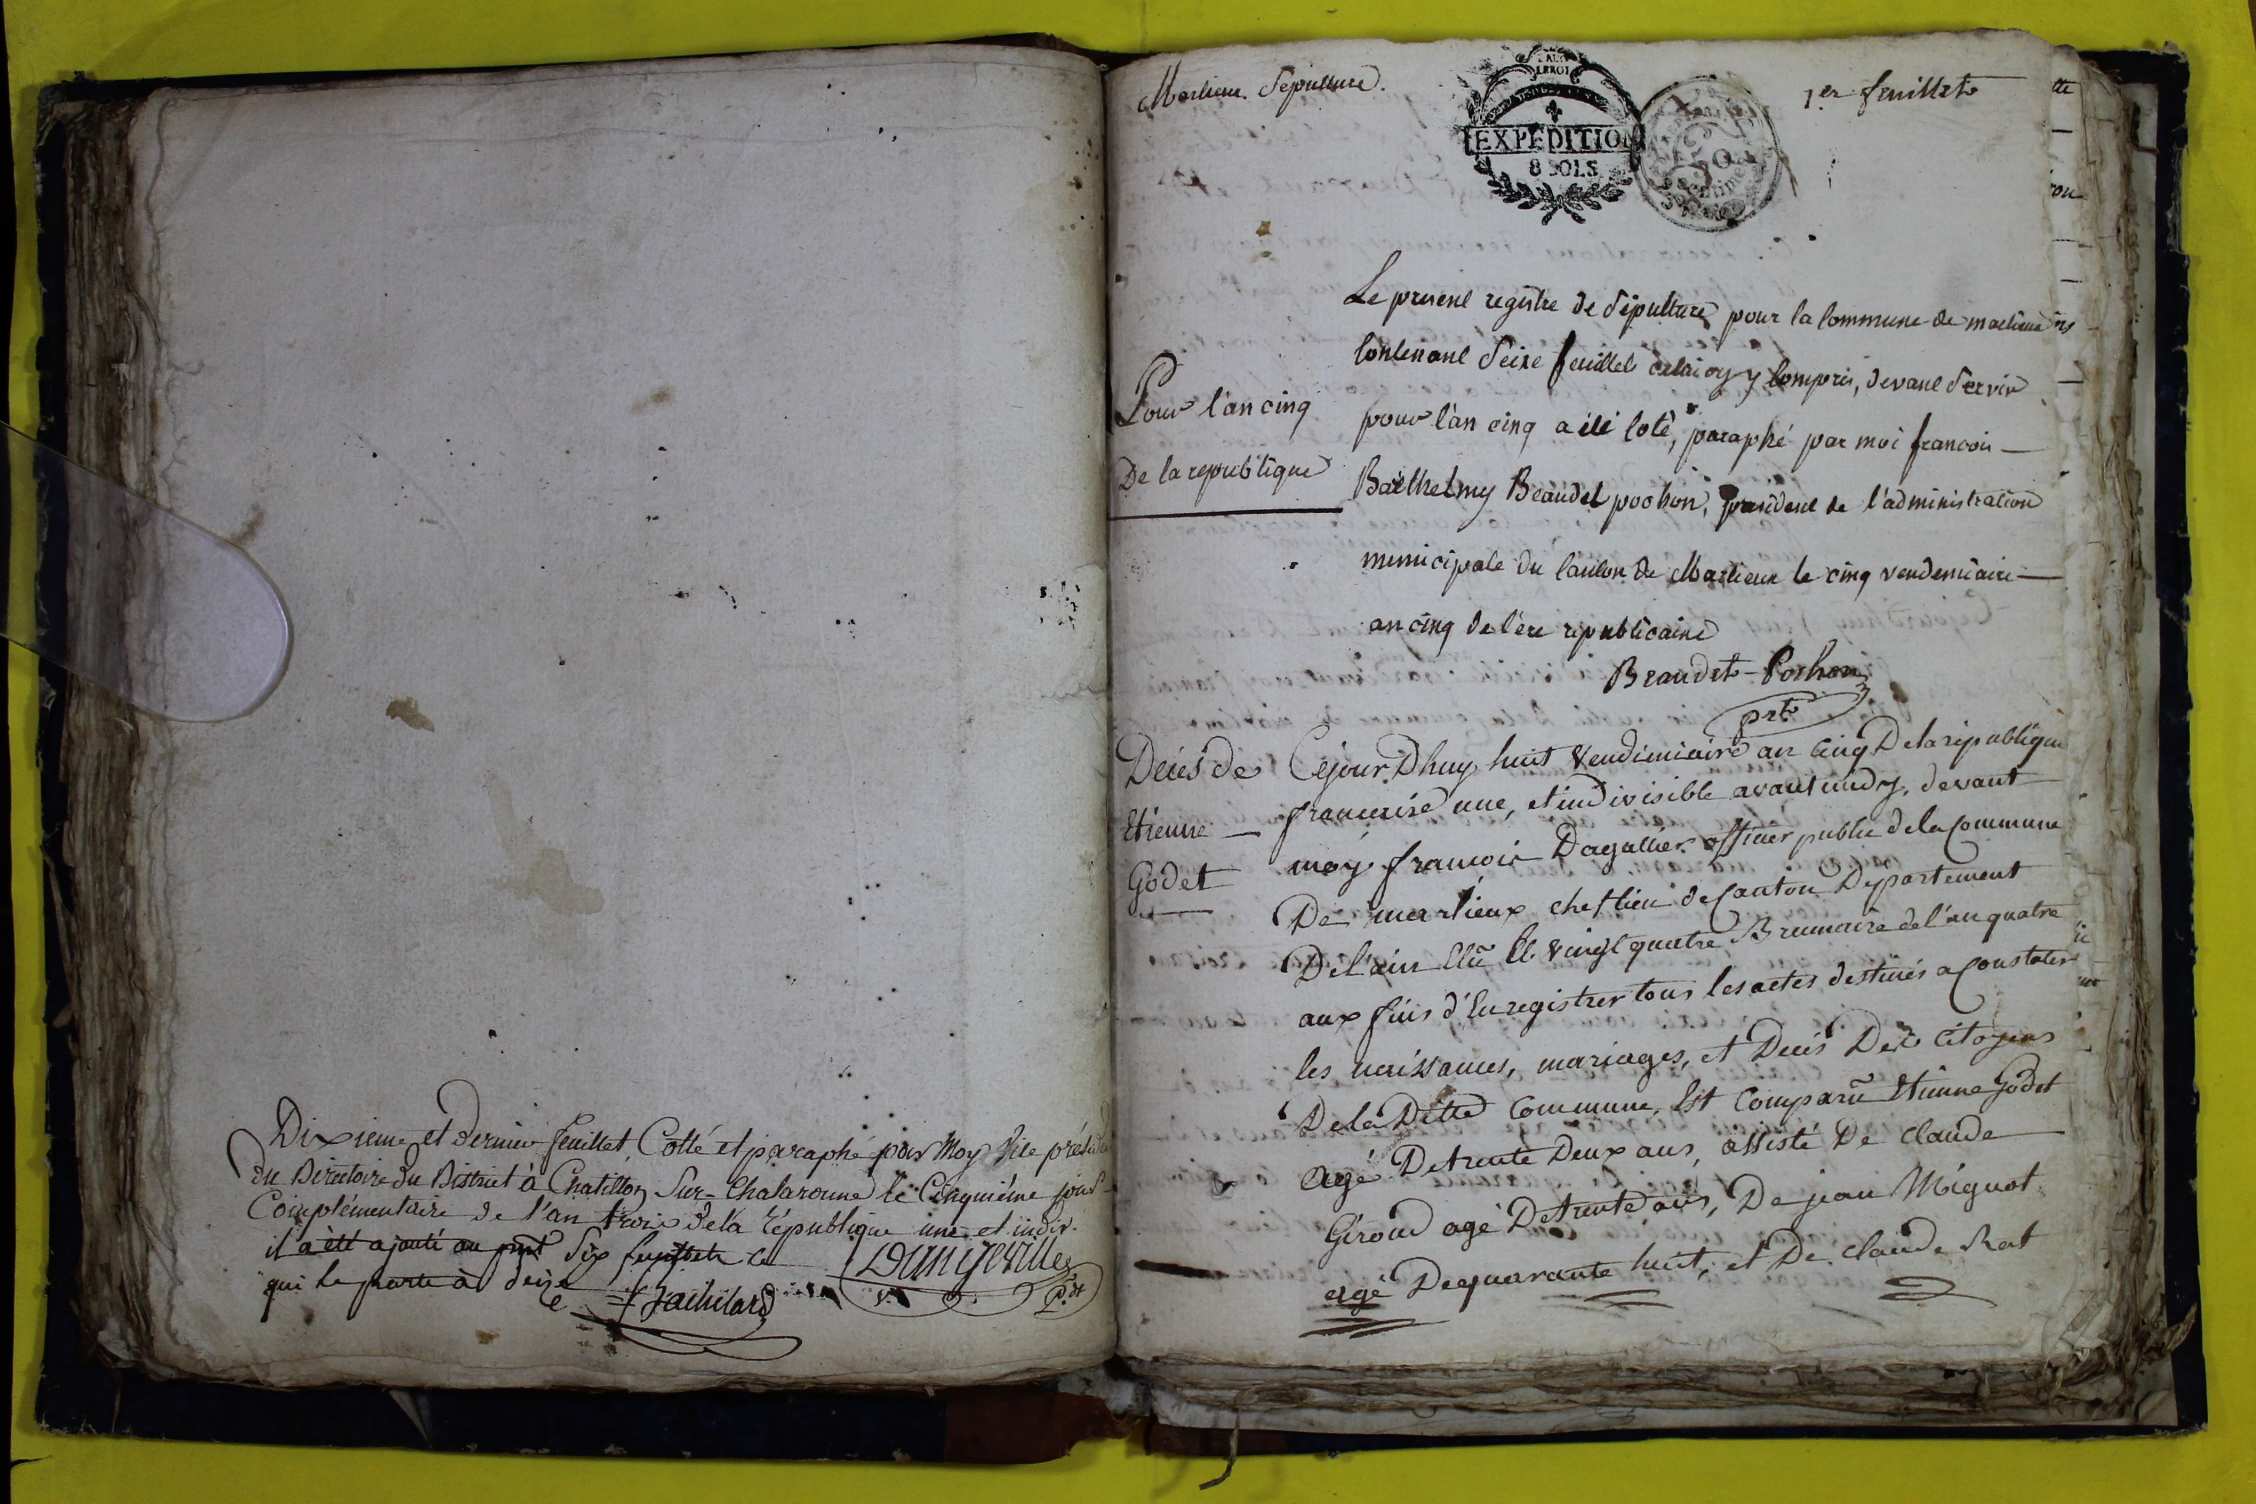 Dixieme et dernier feuillet, Cotté et paraphé par Moy Vice présid
du Directoire du District à Chatillon Sur-Chalaronne le Cinquiéme jour
Complémentaire de l'an trois dela République une et indiv.
il a été ajouté au pnt Six feuillets
qui le porte à Seize
Dangeville
v. P.dt
Marlieux. Sépulture.
LEROI
EXPEDITION
8 SOLS
50
centimes
1er feuillet
Pour l'an cinq
De la republique
Le présent registre de Sépulture pour la Commune de marlieux
Contenant Seize feuillets celuicy y Compris, devant Servir
pour l'an cinq a été Coté, paraphé par moi francois
Barthelmy Beaudet pochon, president de l'administration
municipale du Canton de Marlieux le cinq vendemiaire
an cinq de l'ère republicaine
Beaudet-Pochon
prt
Decés de
Etienne
Godet
Cejour D'huy huit Vendimiaire an Cinq Dela république
francaise une, et indivisible avant midy, devant
moy francois Dagallier officier public dela Commune
De marlieux cheflieu de Canton Departement
De l'ain Elu le vingt quatre Brumaire de l'an quatre
aux fins d'Enregistrer tous les actes destinés a Constater
les naissances, mariages, et Decés Des Citoyens
Dela Ditte Commune, Est Comparu Etienne Godet
agé De trente Deux ans, assisté De claude
Giroud agé De trente ans, De jean Mignot
agé De quarante huit, et De claude Rat